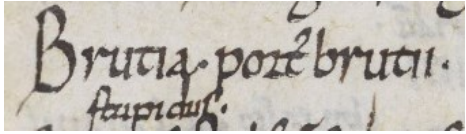 Brutia· portẽ brutii·
stupidus·